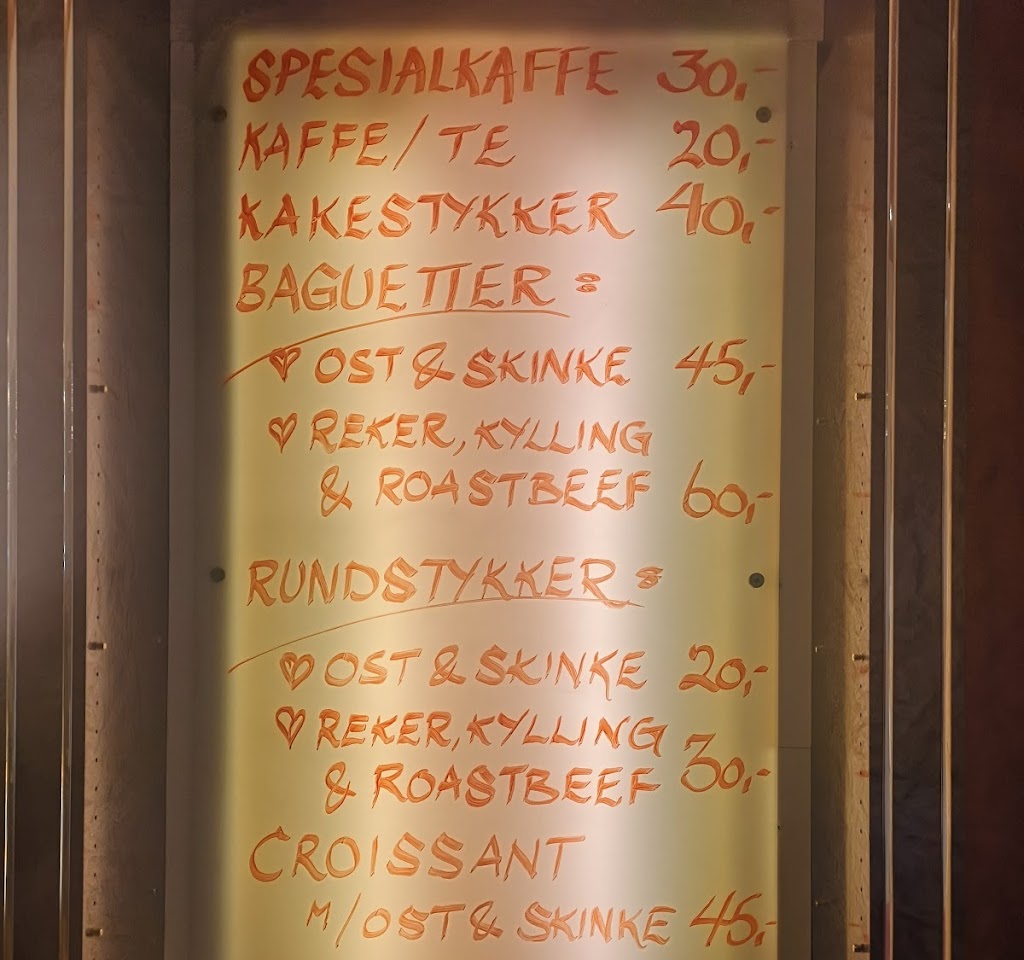 SPESIALKAFFE 30,-
KAFFE/TE 20,-
KAKESTYKKER 40,-
BAGUETTER:
♥ OST & SKINKE 45,-
♥ REKER, KYLLING
& ROASTBEEF 60,-
RUNDSTYKKER:
♥ OST & SKINKE 20,-
♥ REKER, KYLLING
& ROASTBEEF 30,-
CROISSANT
M/OST & SKINKE 45,-